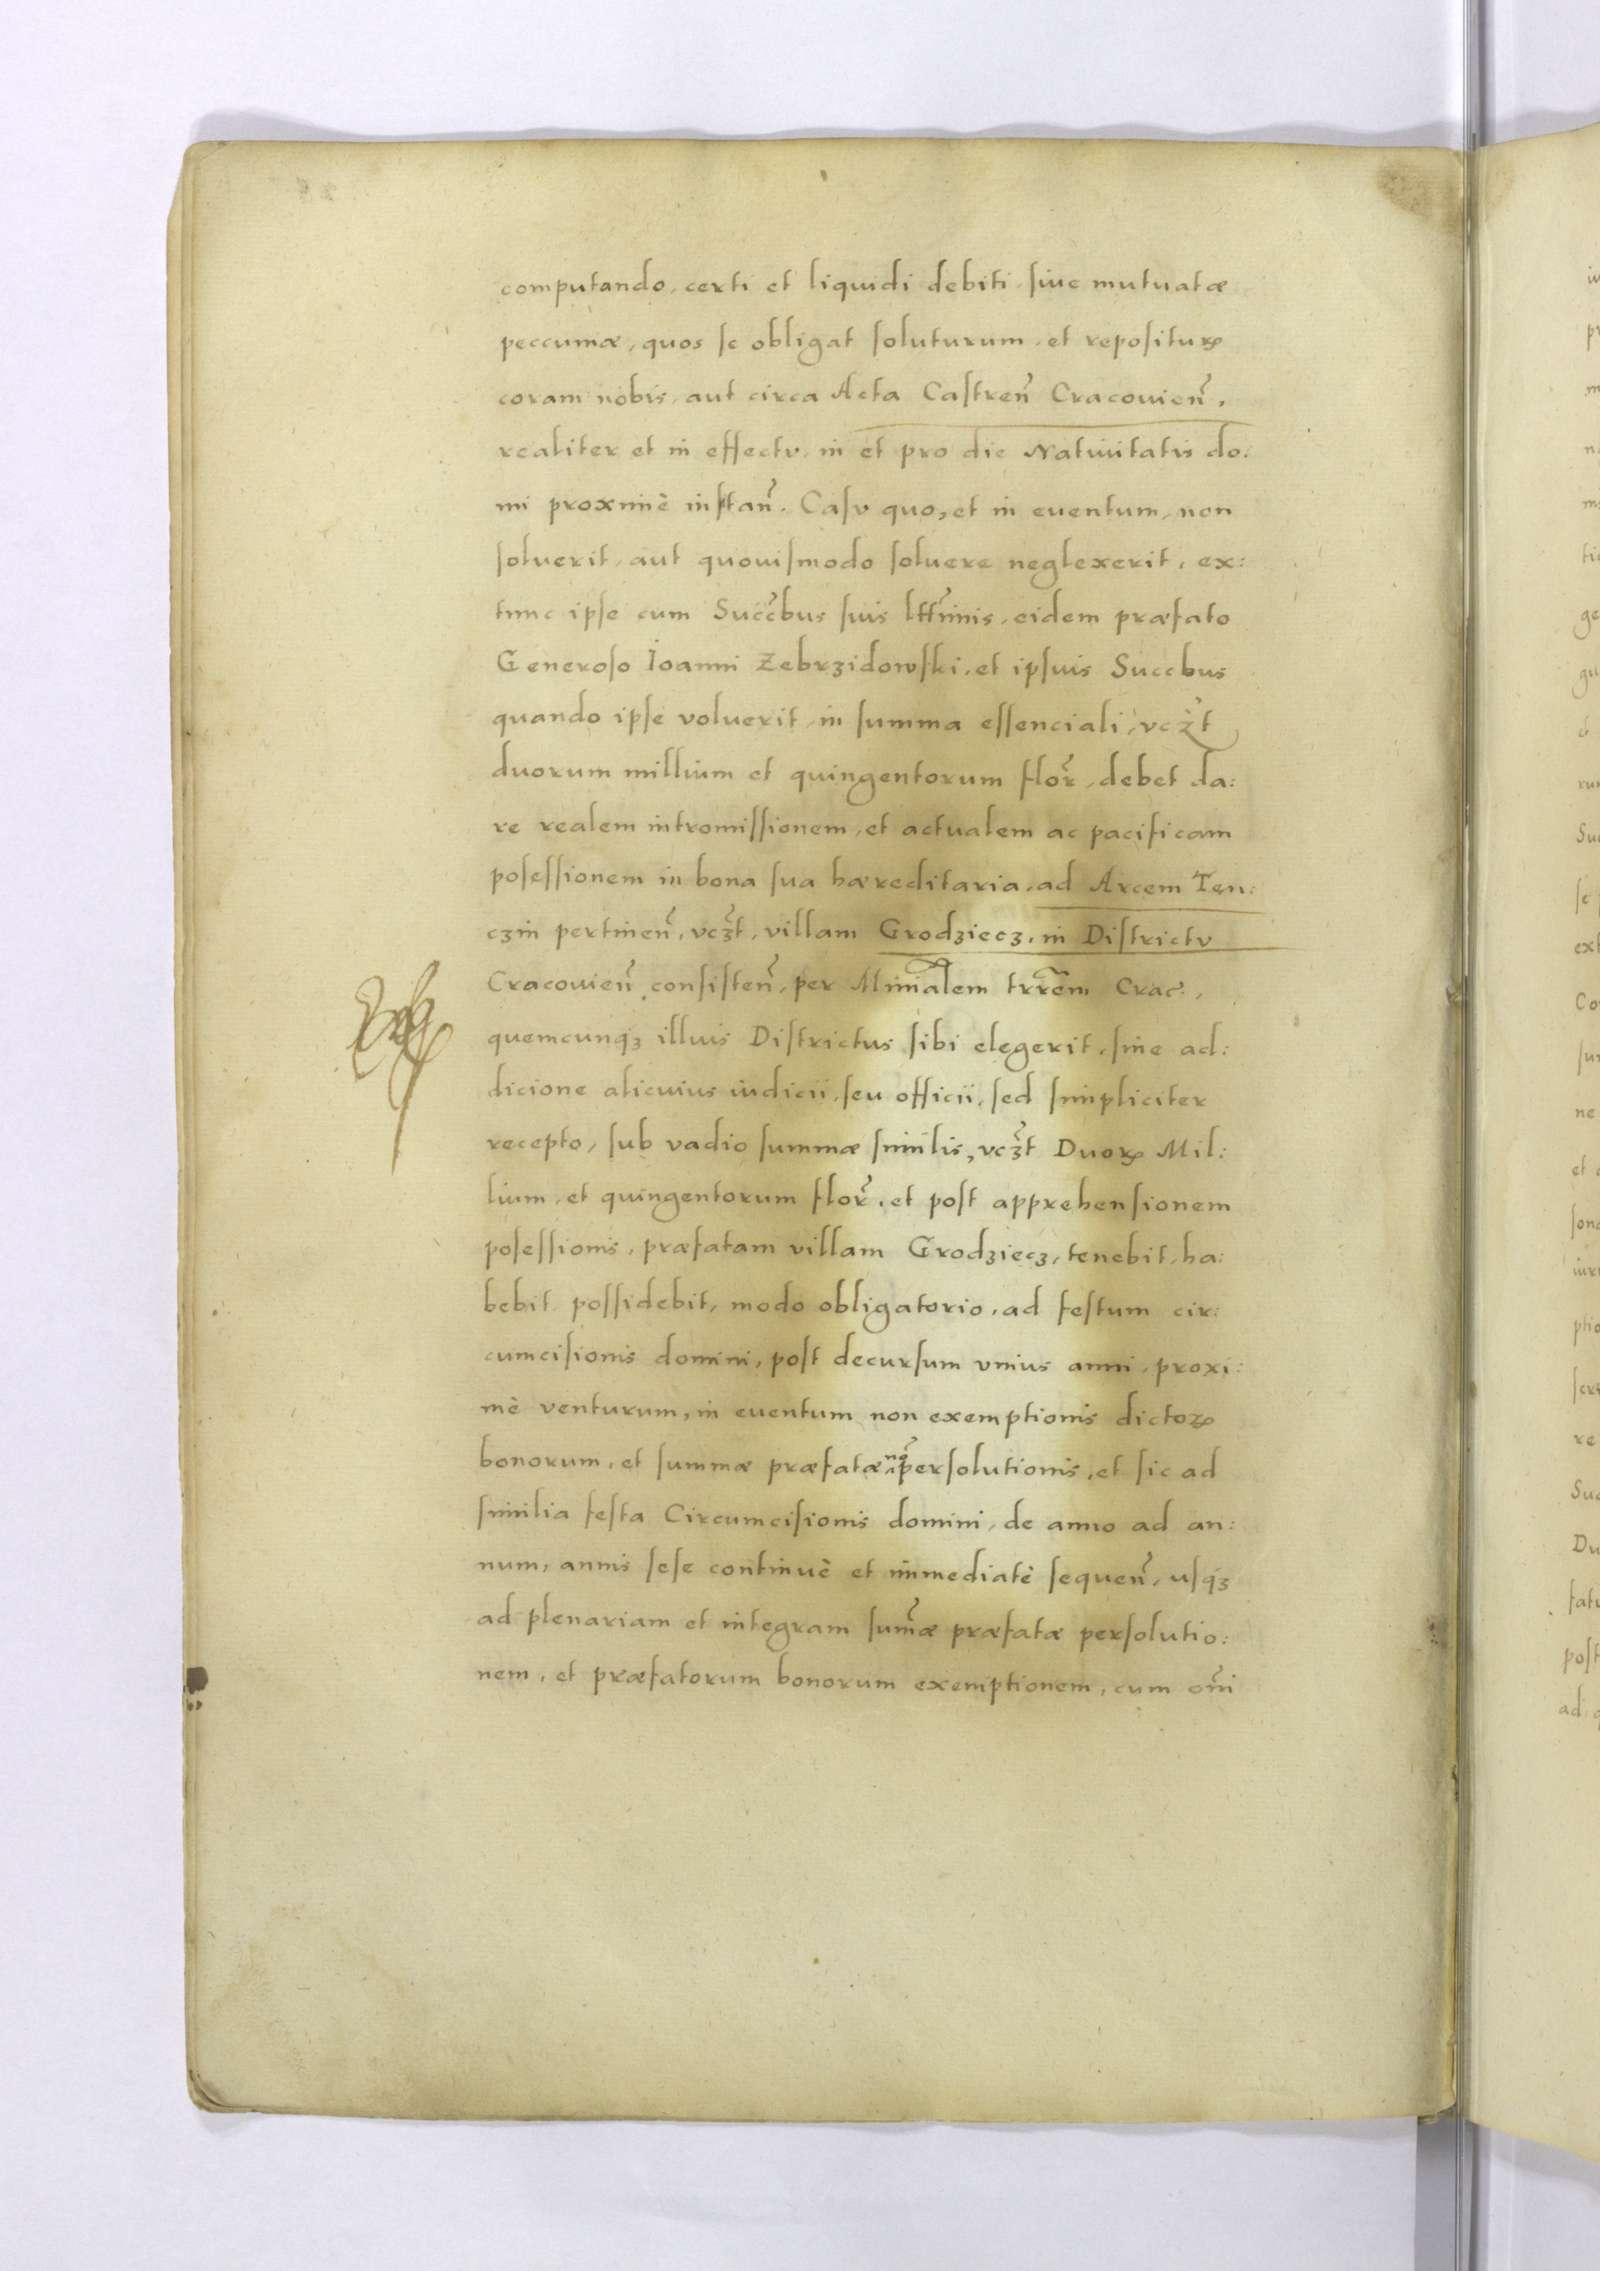 computando, certi et liquidi debiti, siue mutuatæ
peccuniæ, quos se obligat soluturum, et repositurꝝ
coram nobis, aut circa Acta Castreñ Cracouieñ,
realiter et in effectv, in et pro die Natiuitatis do:
mi proximè instañ. Casv quo, et in euentum, non
soluerit, aut quouismodo soluere neglexerit, ex:
tunc ipse cum Succ̃bus suis ltt̃imis, eidem præfato
Generoso Ioanni Zebrzidowski, et ipsius Succbus
quando ipse voluerit, in summa essenciali, vcz̃t
duorum millium et quingentorum flor̃, debet da:
re realem intromissionem, et actualem ac pacificam
posessionem in bona sua hæreditaria, ad Arcem Ten:
czin pertineñ, vcz̃t, villam Grodziecz, in Districtv
Cracouieñ consisteñ, per Minial̃em trrẽm Crac̃,
quemcunqꝫ illius Districtus sibi elegerit, sine ad:
dicione alicuius iudicii, seu officii, sed simpliciter
recepto, sub vadio summæ similis, vcz̃t Duorꝝ Mil:
lium, et quingentorum flor̃, et post apprehensionem
posessionis, præfatam villam Grodziecz, tenebit, ha:
bebit possidebit, modo obligatorio, ad festum cir:
cumcisionis domini, post decursum vnius anni, proxi:
mè venturum, in euentum non exemptionis dictoꝝ
bonorum, et summæ præfatæ nõ persolutionis, et sic ad
similia festa Circumcisionis domini, de anno ad an:
num, annis sese continuè et immediatè sequeñ, usqꝫ
ad plenariam et integram sum̃æ præfatæ persolutio:
nem, et præfatorum bonorum exemptionem, cum om̃i